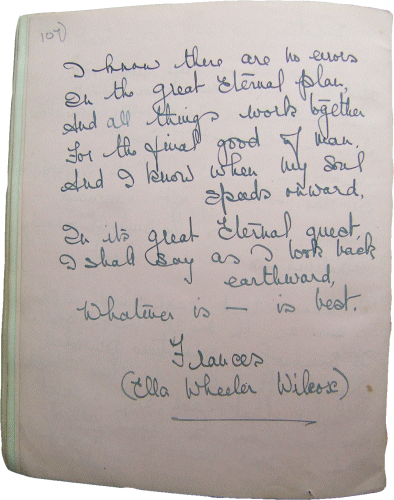 107)
I know there are no errors
In the great Eternal plan,
And all things work together
For the final good of man.
And I know when my soul
speeds onward,
In its great Eternal quest
I shall say as I look back
earthward,
Whatever is — is best.
Frances
(Ella Wheeler Wilcox)